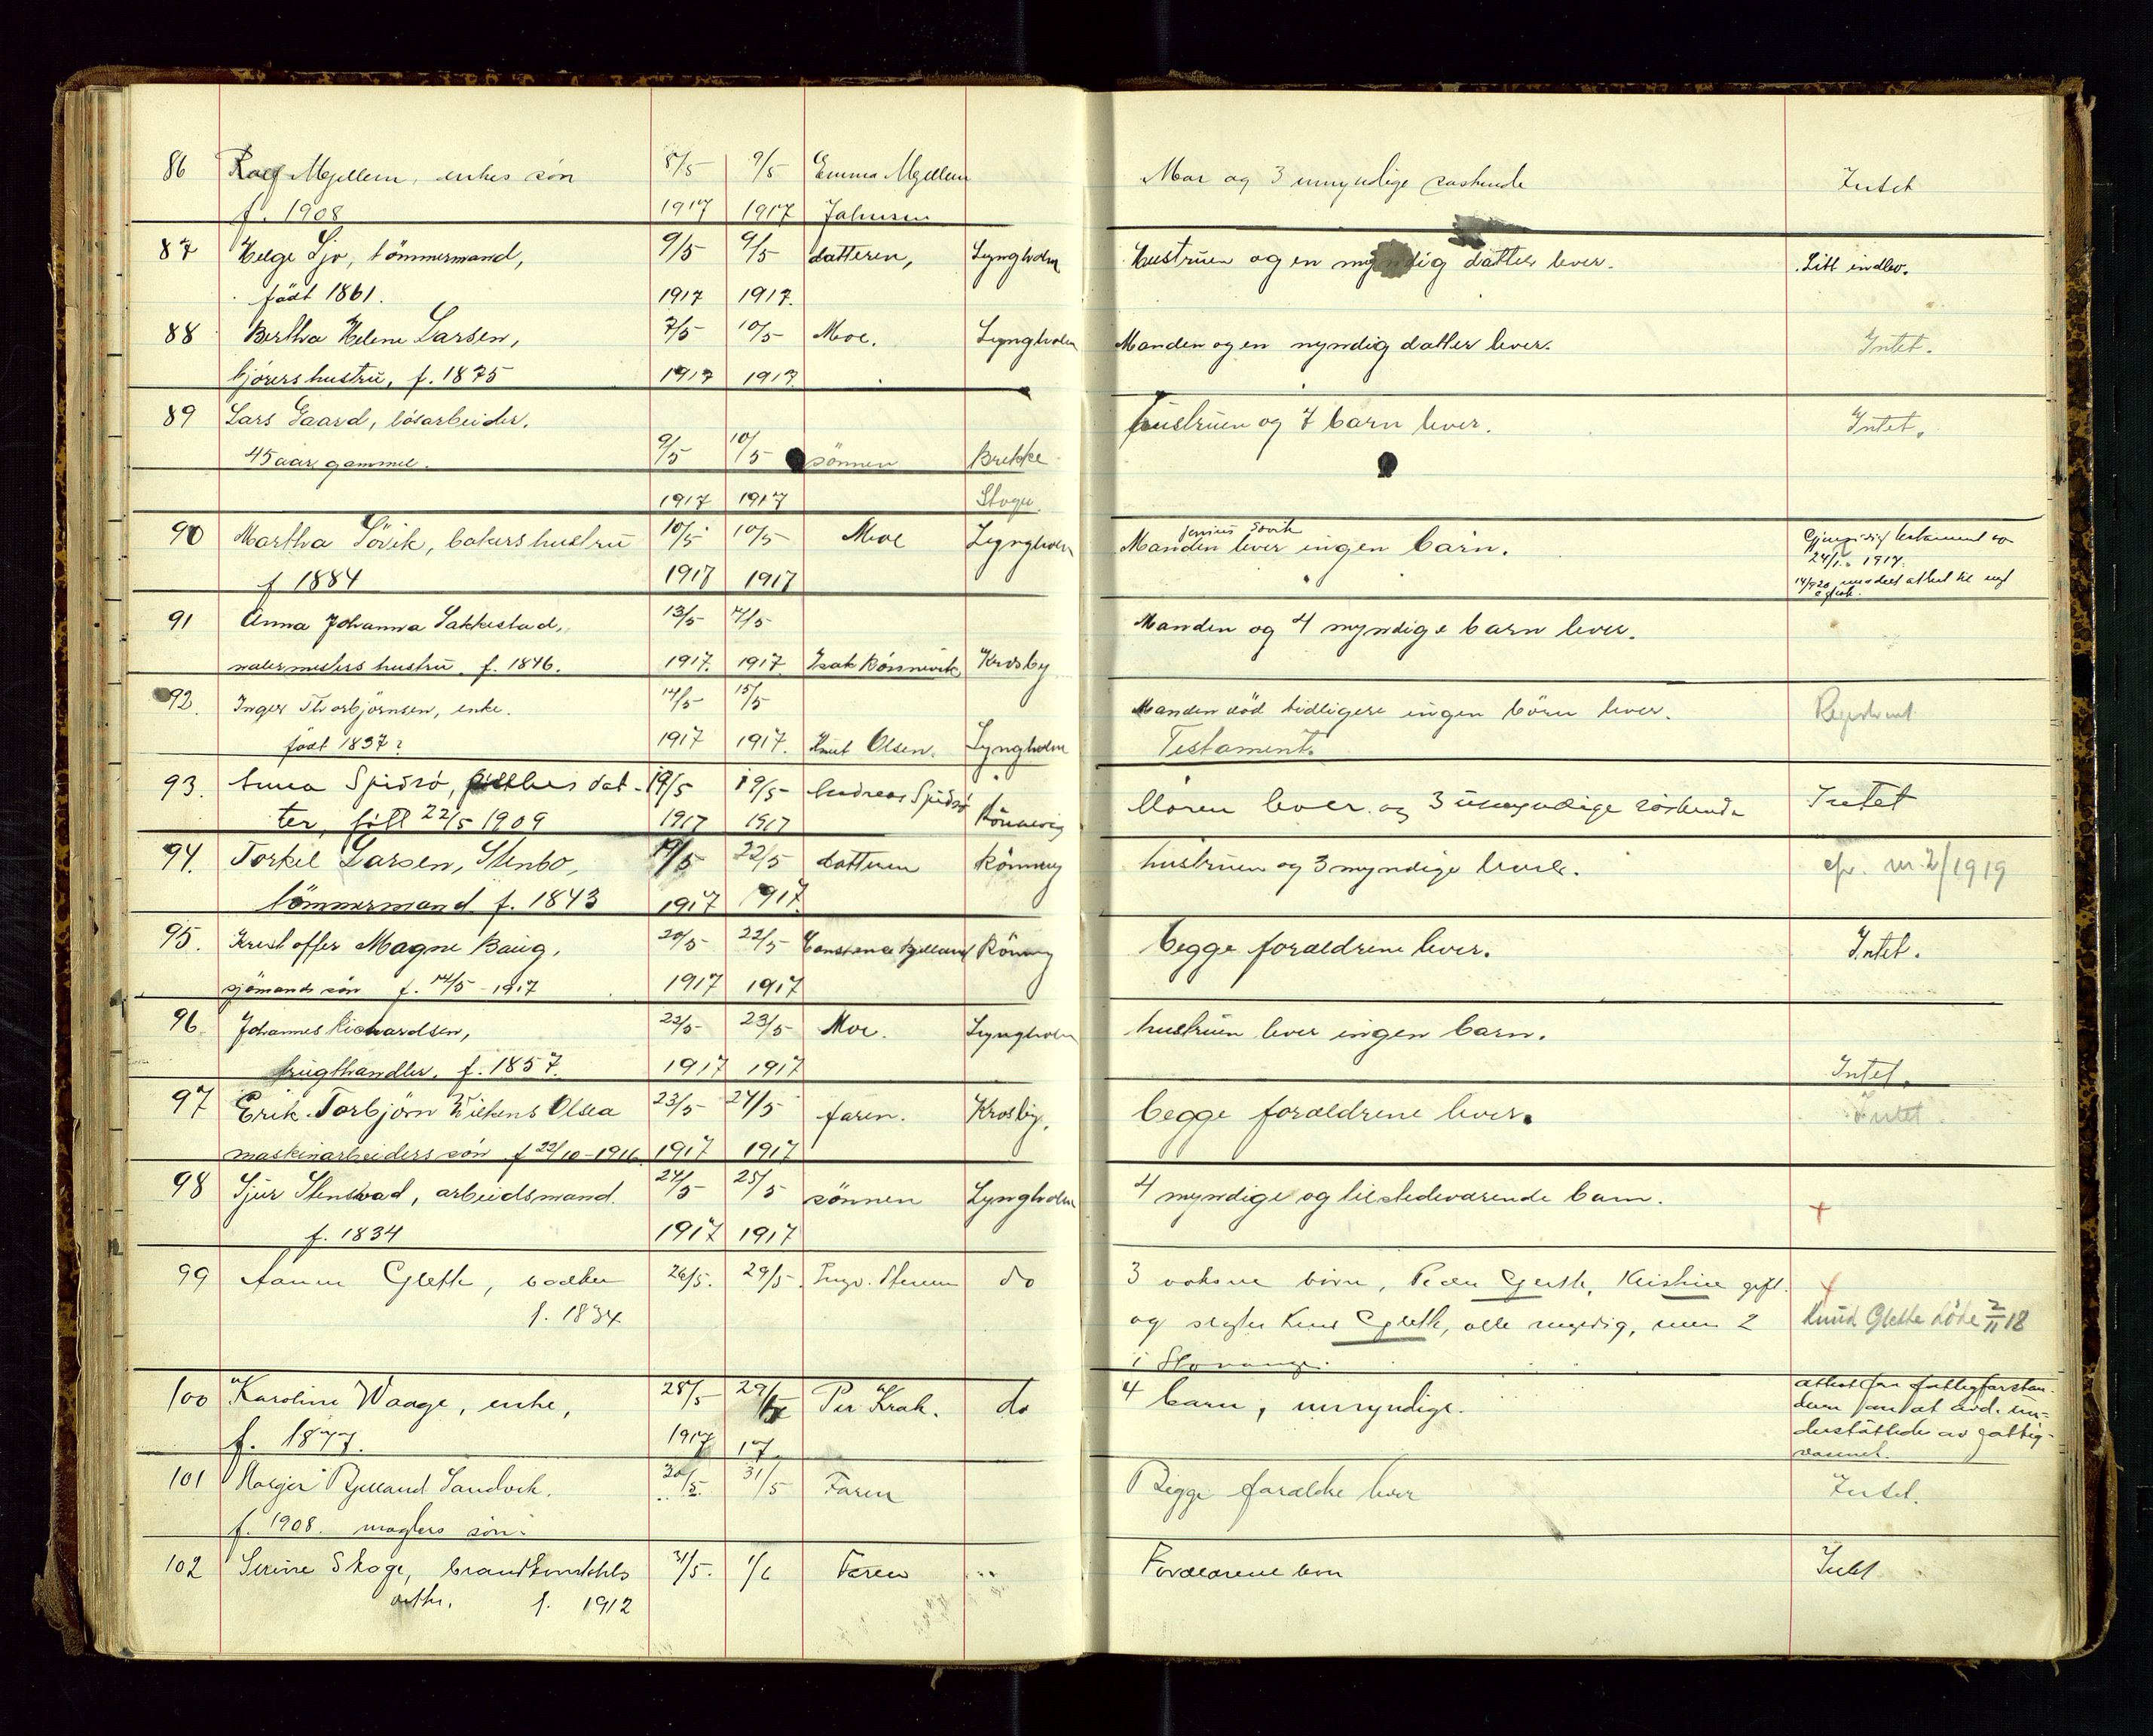 86 Rolf Mjellem, enkes søn 8/5 9/5 Emma Mjellem Mor og 3 umyndige søskende Intet
f. 1908 1917 1917 Johnsen
87 Helge Sjo, tömmermand, 9/5 9/5 datteren, Lyngholm Hustruen og en myndig datter lever. Litt indbo.
født 1861. 1917 1917.
88 Bertha Helene Larsen, 7/5 10/5 Moe. Lyngholm Manden og en myndig datter lever. Intet.
kjörers hustru, f. 1875 1917 1917
89 Lars Gaard, løsarbeider. hustruen og 7 barn lever. Intet.
45 aar gammel. 9/5 10/5 sönnen Brekke
1917 1917
90 Martha Sövik, bakers hustru 10/5 10/5 Moe Lyngholm Manden lever ingen barn. Gjensidig testament av
f 1884 1917 1917 24/1 1917.
91 Anna Johanna Sakkestad, 13/5 14/5 Manden og 4 myndige barn lever.
malermesters hustru. f. 1846. 1917. 1917 Isak Rönnevik Krosby
92. Inger Thorbjörnsen, enke. 14/5 15/5 Manden död tidligere ingen börn lever.
født 1837? 1917 1917. Knut Olsen. Lyngholm Testament.
93. Anna Spidsö, dat- 19/5 19/5 Andreas Spidsö Moren lever og 3 umyndige söskende Intet
ter, född 22/5 1909 1917 1917 Rönnevig
94. Torkel Larsen, Stenbo, 19/5 22/5 datteren Rönnevig hustruen og 3 myndige lever. cfr. nr. 2/1919
tömmermand f. 1843 1917 1917.
95. Kristoffer Magne Baug, 20/5 22/5 Constance Bjelland Rönnevig begge forældrene lever. Intet.
sjömands sön f. 14/5 - 1917 1917 1917
96. Johannes Richardsen, 22/5 23/5 Moe. Lyngholm hustruen lever ingen barn.
frugthandler. f. 1857. 1917 1917 Intet.
97 Erik Torbjörn Wilkens Olsen 23/5 24/5 faren. Krosby. begge forældrene lever. Intet.
maskinarbeiders sön f 22/10-1916. 1917 1917
98 Sjur Stensvad, arbeidsmand. 24/5 25/5 sönnen Lyngholm 4 myndige og tilstedeværende barn. +
f. 1834 1917 1917
99 Gletth, 26/5. 29/5. do 3 voksne börn, Peder Gletth, Kristine gift. +
f. 1834 og Gletth, alle myndig, men 2 Knud Glette döde 2/11 18
i Stavanger.
100 Karoline Waage, enke, 28/5 29/5 Per Krak. do 4 barn, umyndige. attest fra fattigforstan-
f. 1877. 1917 17. deren om at avd. un-
derstöttedes av fattig-
væsenet.
101 Bjelland Sandvik. 30/5. 31/5 Faren Begge forældre lever Intet.
f. 1908. mæglers sön.
102 Serine Skoge, brandkonstabels 31/5. 1/6 Faren ... Forældrene lever Intet
datter. f. 1912